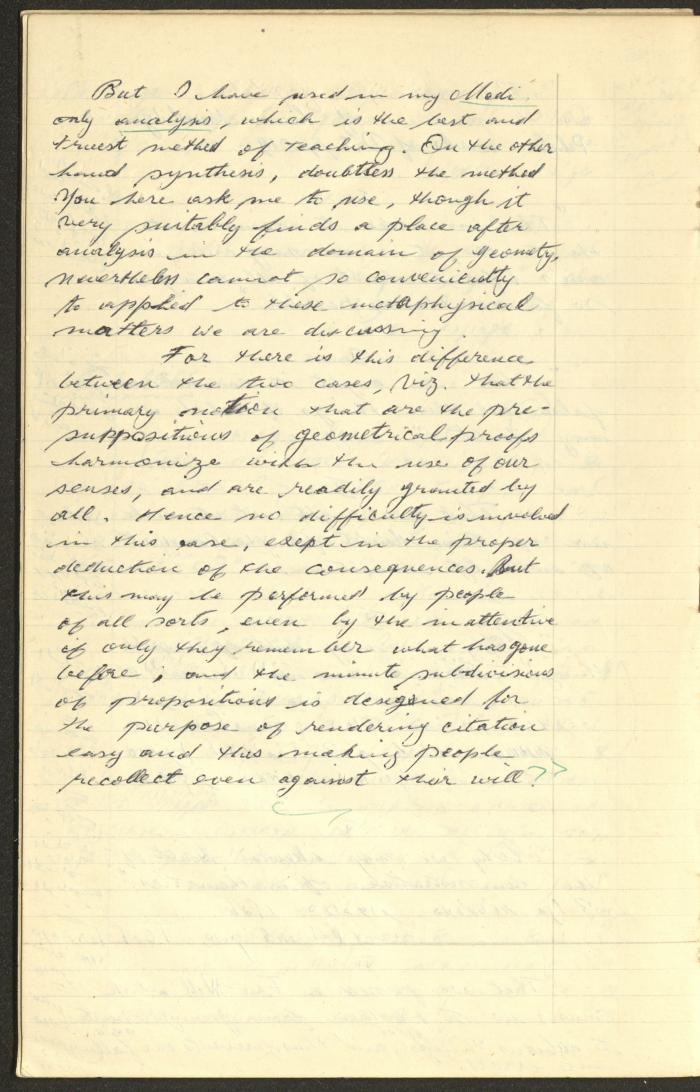 But I have used in my Medi.
only analysis, which is the best and
truest method of teaching. On the other
hand synthesis, doubtless the method
you here ask me to use, though it
very suitably finds a place after
analysis in the domain of geomety,
nevertheless cannot so conveniently
to applied to these metaphysical
matters we are discussing.
For there is this difference
between the two cases, viz. that the
primary notion that are the pre-
suppositions of geometrical proofs
harmonize with the use of our
senses, and are readily granted by
all. Hence no difficulty is involved
in this case, exept in the proper
deduction of the consequences. But
this may be performed by people
of all sorts, even by the inattentive
if only they remember what has gone
before; and the minute subdivisions
of propositions is designed for
the purpose of rendering citation
easy and thus making people
recollect even against their will?